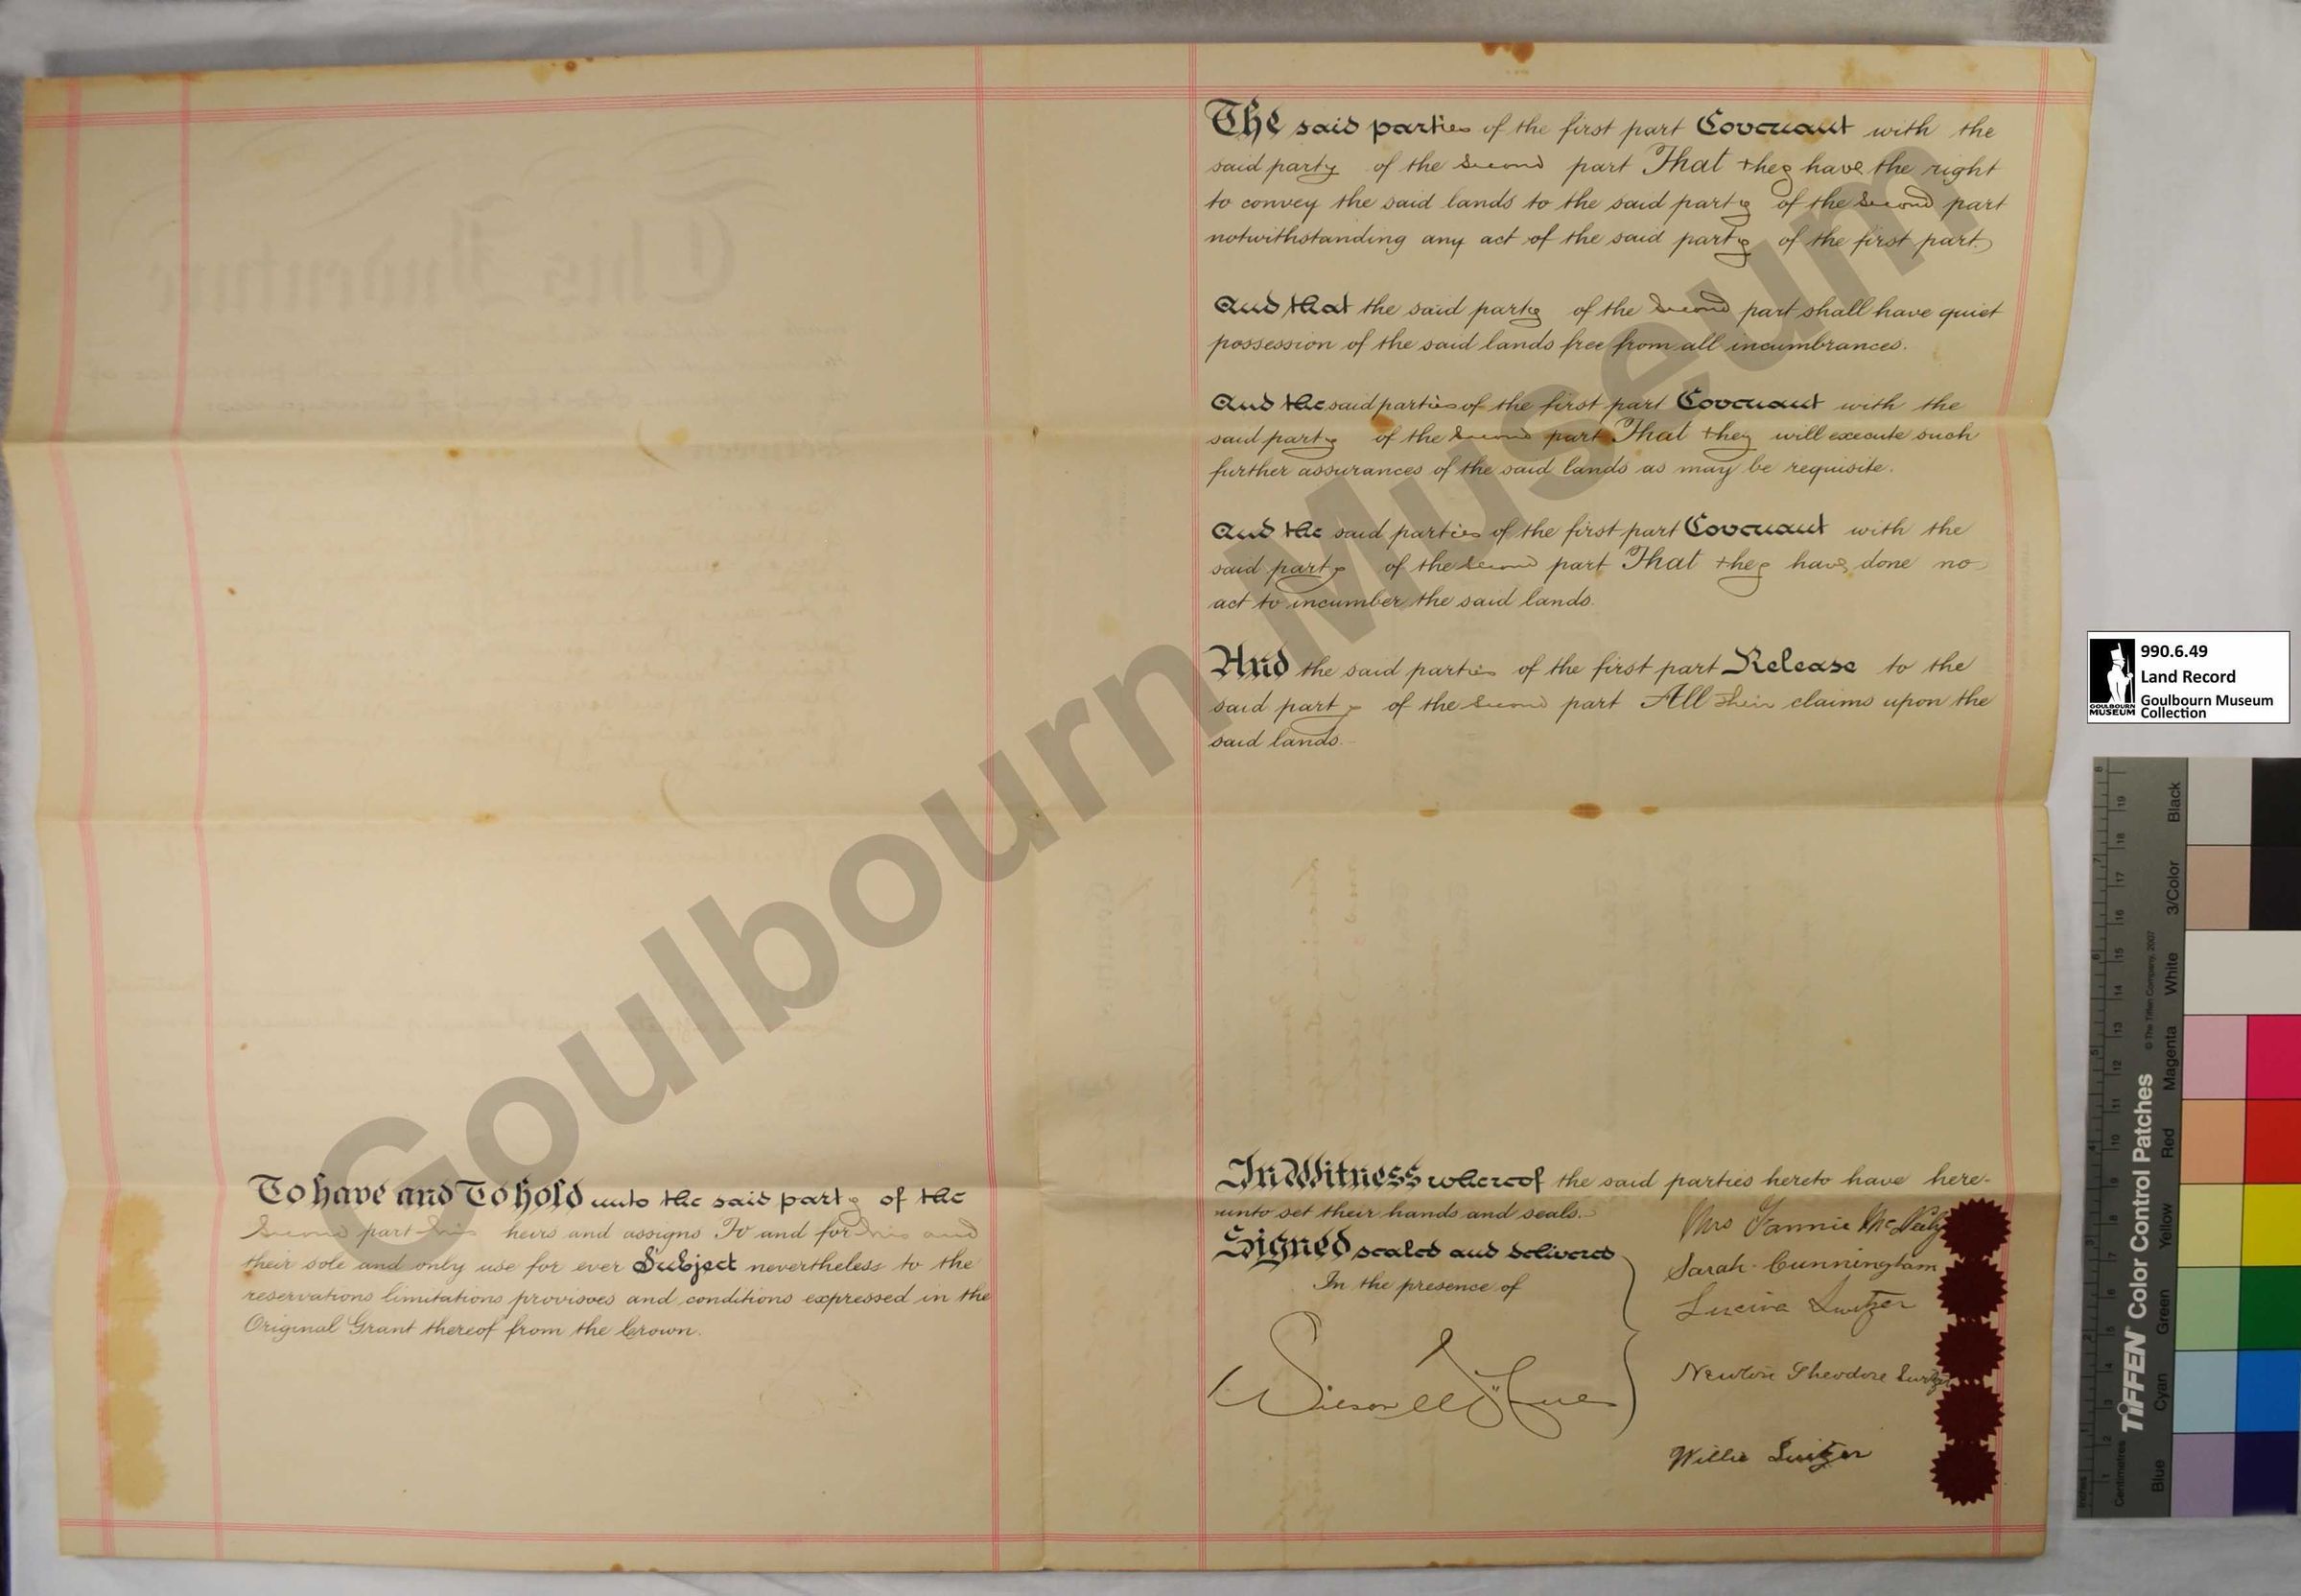 To have and To hold unto the said party of the
Second part his heirs and assigns To and for his and
their sole and only use for ever Subject nevertheless to the
reservations limitations provisoes and conditions expressed in the
Original Grant thereof from the Crown.
The said parties of the first part Covenant with the
said party of the Second part That they have the right
to convey the said lands to the said party of the Second part
notwithstanding any act of the said party of the first part
And that the said party of the Second part shall have quiet
possession of the said lands free from all incumbrances.
And the said parties of the first part Covenant with the
said party of the Second part That they will execute such
further assurances of the said lands as may be requisite.
And the said parties of the first part Covenant with the
said party of the Second part That they have done no
act to incumber the said lands.
And the said parties of the first part Release to the
said party of the Second part All their claims upon the
said lands.
In Witness whereof the said parties hereto have here-
unto set their hands and seals.
Signed sealed and delivered
In the presence of
Mrs Fannie
Sarah Cunningham
Switzer
Newton Theodore Switzer
Willie Switzer
Goulbourn Museum
990.6.49
Land Record
Goulbourn Museum
Collection
GOULBOURN
MUSEUM
TIFFEN Color Control Patches
© The Tiffen Company, 2007
Centimetres
Inches
Blue
Cyan
Green
Yellow
Red
Magenta
White
3/Color
Black